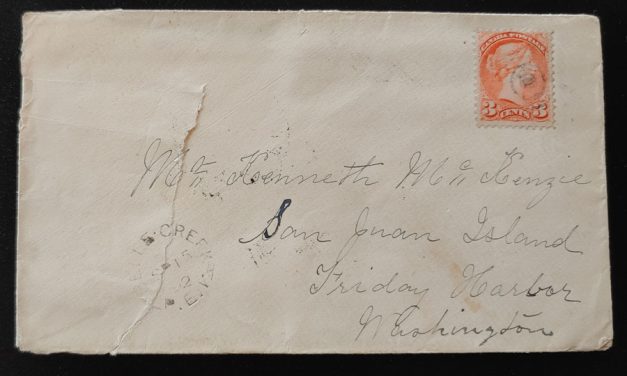 CANADA POSTAGE
3 CENTS 3
Mr Kenneth McKenzie
San Juan Island
Friday Harbor
Washington
CREEK
15
P.E.I.